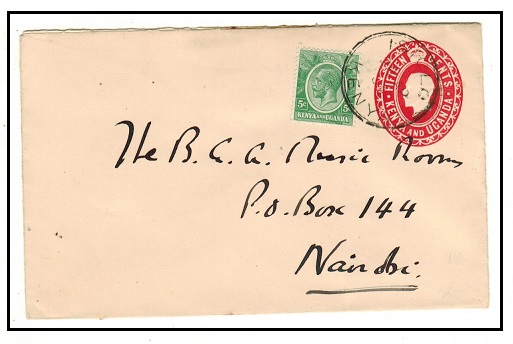 5c 5c
KENYA AND UGANDA
FIFTEEN CENTS
KENYA AND UGANDA
KENY
The B.E.A. Music Rooms
P.O. Box 144
Nairobi.